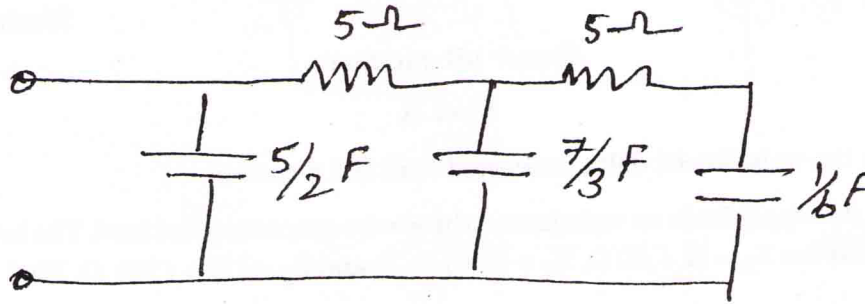 5Ω 5Ω
5/2 F 7/3 F 1/6 F